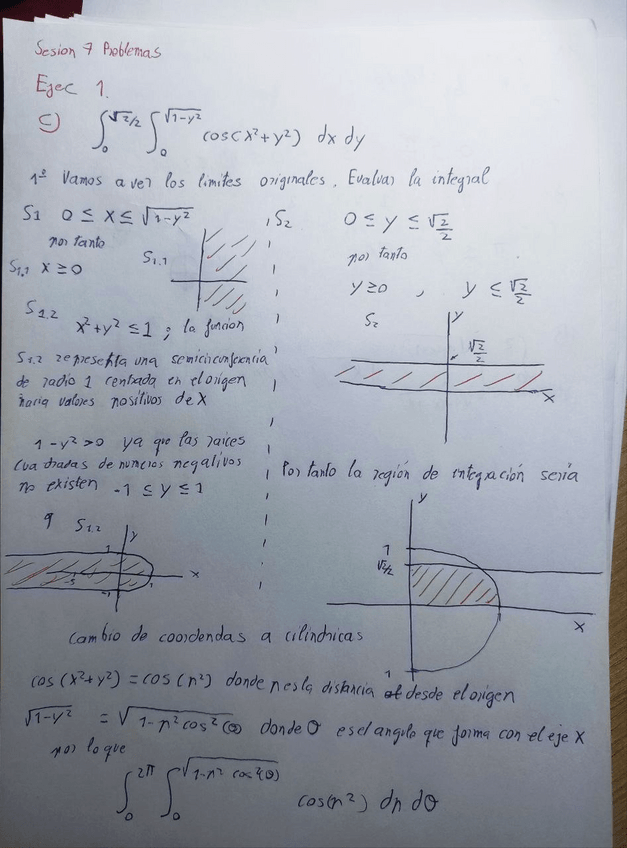 Sesion 7 Problemas
Ejec 1.
c) ∫₀^{√2/2} ∫₀^{√(1-y²)} cos(x²+y²) dx dy
1º Vamos a ver los limites originales. Evaluar la integral
S1 0 ≤ x ≤ √(1-y²)
por tanto
S1.1 x ≥ 0
S1.1
S1.2
x²+y² ≤ 1 ; la funcion
S1.2 representa una semicircunferencia
de radio 1 centrada en el origen
hacia valores positivos de x
1-y² >0 ya que las raices
cuadradas de numeros negativos
no existen -1 ≤ y ≤ 1
S1.2
y
1
x
-1
S2 0 ≤ y ≤ √2/2
por tanto
y ≥ 0 , y ≤ √2/2
S2
y
√2/2
x
Por tanto la región de integración sería
y
1
√2/2
x
1
Cambio de coordendas a cilindricas
cos(x²+y²) = cos(r²) donde r es la distancia desde el origen
√(1-y²) = √(1-r²cos²(θ)) donde θ es el angulo que forma con el eje X
por lo que
∫₀^{2π} ∫₀^{√(1-r² cos²(θ))} cos(r²) dr dθ